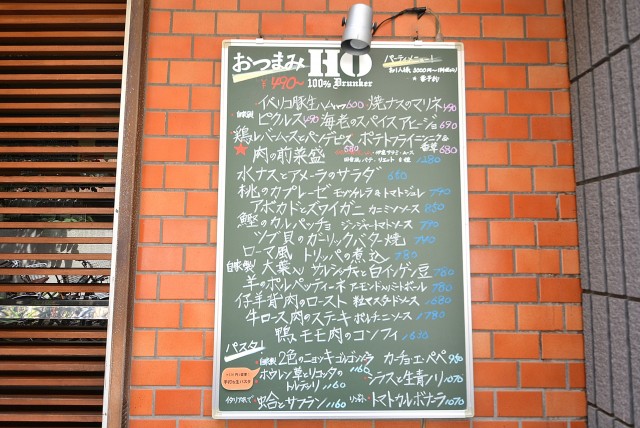 おつまみ HO パーティメニュー
¥490〜 100% Drunker
イベリコ豚生ハム 600 焼ナスのマリネ 490
自家製 ピクルス 490 海老のスパイスアヒージョ 690
鶏レバームースとパンデピス ポテトフライニンニク& 680
★ 肉の前菜盛 1280
水ナスとアメーラのサラダ 680
桃のカプレーゼ モッツァレラ&トマトジュレ 790
アボカドとズワイガニ カニミソソース 850
鰹のカルパッチョ ジンジャートマトソース 790
ツブ貝のガーリックバター焼
ローマ風 トリッパの煮込 780
自家製 大葉入りサルシッチャと白インゲン豆 780
羊のポルペッティーネ アーモンド入りミートボール 780
仔羊背肉のロースト 粒マスタードソース 1680
牛ロース肉のステーキ ポルチーニソース 1780
鴨モモ肉のコンフィ
パスタ!
自家製 2色のニョッキゴルゴンゾーラ 1160 カーチョ・エ・ペペ 980
ホウレン草とリコッタのトルテッリ 1160 シラスと生青ノリ 1070
蛤とサフラン 1160 トマトカルボナーラ 1070